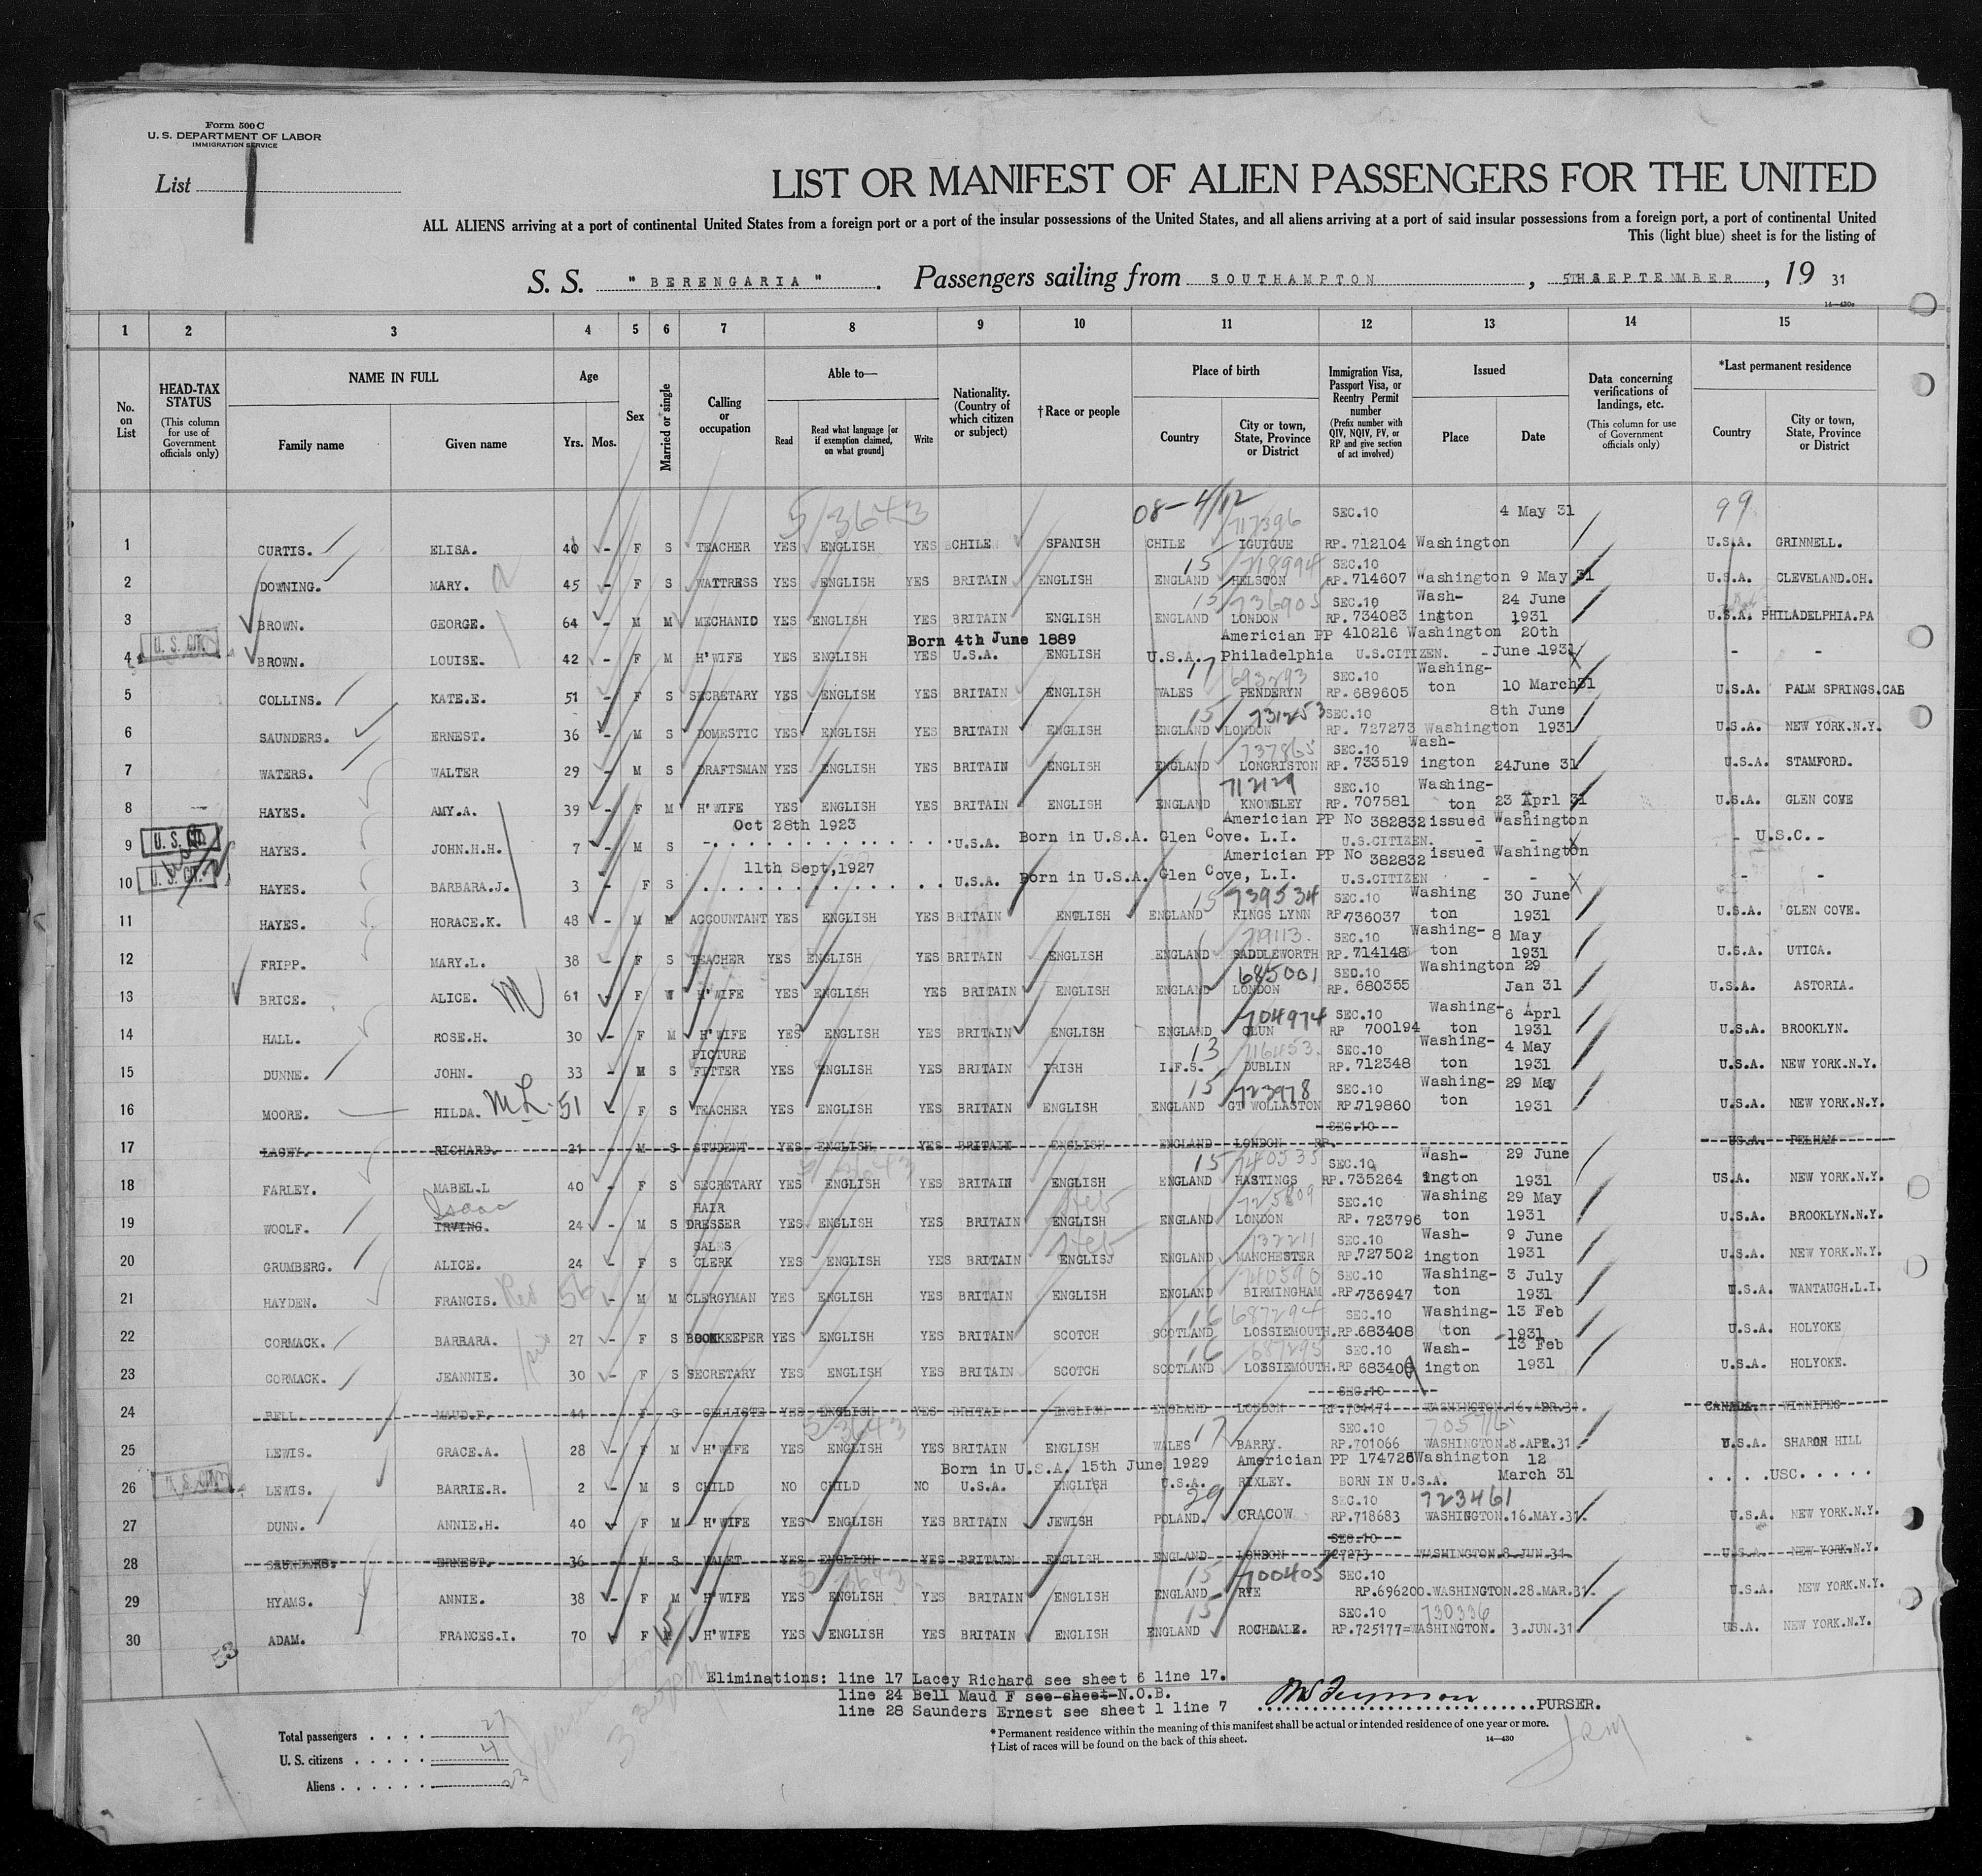 Form 500 C
U. S. DEPARTMENT OF LABOR
IMMIGRATION SERVICE
List 1
LIST OR MANIFEST OF ALIEN PASSENGERS FOR THE UNITED
ALL ALIENS arriving at a port of continental United States from a foreign port or a port of the insular possessions of the United States, and all aliens arriving at a port of said insular possessions from a foreign port, a port of continental United
This (light blue) sheet is for the listing of
S. S. "BERENGARIA". Passengers sailing from SOUTHAMPTON, 5TH SEPTEMBER, 19 31
14—430
1 2 3 4 5 6 7 8 9 10 11 12 13 14 15
No. on List
HEAD-TAX STATUS (This column for use of Government officials only)
NAME IN FULL Family name Given name
Age Yrs. Mos.
Sex
Married or single
Calling or occupation
Able to— Read Read what language [or if exemption claimed, on what ground] Write
Nationality. (Country of which citizen or subject)
†Race or people
Place of birth Country City or town, State, Province or District
Immigration Visa, Passport Visa, or Reentry Permit number (Prefix number with QIV, NQIV, PV, or RP and give section of act involved)
Issued Place Date
Data concerning verifications of landings, etc. (This column for use of Government officials only)
*Last permanent residence Country City or town, State, Province or District
5/3643 08-4/12 717396 SEC.10 4 May 31 99
1 CURTIS. ELISA. 40 - F S TEACHER YES ENGLISH YES CHILE SPANISH CHILE IGUIGUE RP.712104 Washington U.S.A. GRINNELL.
15 718994 SEC.10
2 DOWNING. MARY. 45 - F S WATTRESS YES ENGLISH YES BRITAIN ENGLISH ENGLAND HELSTON RP.714607 Washington 9 May 31 U.S.A. CLEVELAND.OH.
15 736905 SEC.10 Wash- 24 June
3 BROWN. GEORGE. 64 - M M MECHANIC YES ENGLISH YES BRITAIN ENGLISH ENGLAND LONDON RP.734083 ington 1931 U.S.A. PHILADELPHIA.PA
U. S. CIT. Born 4th June 1889 Americian PP 410216 Washington 20th
4 BROWN. LOUISE. 42 - F M H'WIFE YES ENGLISH YES U.S.A. ENGLISH U.S.A. Philadelphia U.S.CITIZEN. - June 1931 - -
17 693293 SEC.10 Washing-
5 COLLINS. KATE.E. 51 - F S SECRETARY YES ENGLISH YES BRITAIN ENGLISH WALES PENDERYN RP.689605 ton 10 March31 U.S.A. PALM SPRINGS.CAL
15 731253 SEC.10 8th June
6 SAUNDERS. ERNEST. 36 - M S DOMESTIC YES ENGLISH YES BRITAIN ENGLISH ENGLAND LONDON RP. 727273 Washington 1931 U.S.A. NEW YORK.N.Y.
737865 SEC.10 Wash-
7 WATERS. WALTER 29 - M S DRAFTSMAN YES ENGLISH YES BRITAIN ENGLISH ENGLAND LONGRISTON RP.733519 ington 24June 31 U.S.A. STAMFORD.
712129 SEC.10 Washing-
8 HAYES. AMY.A. 39 - F M H'WIFE YES ENGLISH YES BRITAIN ENGLISH ENGLAND KNOWSLEY RP.707581 ton 23 Aprl 31 U.S.A. GLEN COVE
U. S. CIT. Oct 28th 1923 Americian PP No 382832 issued Washington
9 HAYES. JOHN.H.H. 7 - M S - U.S.A. Born in U.S.A. Glen Cove. L.I. U.S.CITIZEN. - - - U.S.C. -
U. S. CIT. 11th Sept,1927 Americian PP No 382832 issued Washington
10 HAYES. BARBARA.J. 3 - F S U.S.A. Born in U.S.A. Glen Cove, L.I. U.S.CITIZEN - - - -
15 739534 SEC.10 Washing 30 June
11 HAYES. HORACE.K. 48 - M M ACCOUNTANT YES ENGLISH YES BRITAIN ENGLISH ENGLAND KINGS LYNN RP.736037 ton 1931 U.S.A. GLEN COVE.
719113. SEC.10 Washing- 8 May
12 FRIPP. MARY.L. 38 - F S TEACHER YES ENGLISH YES BRITAIN ENGLISH ENGLAND SADDLEWORTH RP.714148 ton 1931 U.S.A. UTICA.
685001 SEC.10 Washington 29
13 BRICE. ALICE. M 61 - F W H'WIFE YES ENGLISH YES BRITAIN ENGLISH ENGLAND LONDON RP. 680355 Jan 31 U.S.A. ASTORIA.
704974 SEC.10 Washing- 6 Aprl
14 HALL. ROSE.H. 30 - F M H'WIFE YES ENGLISH YES BRITAIN ENGLISH ENGLAND CLUN RP 700194 ton 1931 U.S.A. BROOKLYN.
PICTURE 13 716453. SEC.10 Washing- 4 May
15 DUNNE. JOHN. 33 - M S FITTER YES ENGLISH YES BRITAIN IRISH I.F.S. DUBLIN RP.712348 ton 1931 U.S.A. NEW YORK.N.Y.
15 723978 SEC.10 Washing- 29 May
16 MOORE. HILDA. ML. 51 - F S TEACHER YES ENGLISH YES BRITAIN ENGLISH ENGLAND GT WOLLASTON RP.719860 ton 1931 U.S.A. NEW YORK.N.Y.
SEC.10
17 LACEY. RICHARD. 21 - M S STUDENT YES ENGLISH YES BRITAIN ENGLISH ENGLAND LONDON RP. U.S.A. PELHAM
5/3643 15 740535 SEC.10 Wash- 29 June
18 FARLEY. MABEL.L 40 - F S SECRETARY YES ENGLISH YES BRITAIN ENGLISH ENGLAND HASTINGS RP.735264 ington 1931 US.A. NEW YORK.N.Y.
Isaac HAIR Heb 725809 SEC.10 Washing 29 May
19 WOOLF. IRVING. 24 - M S DRESSER YES. ENGLISH YES BRITAIN ENGLISH ENGLAND LONDON RP. 723796 ton 1931 U.S.A. BROOKLYN.N.Y.
SALES Heb SEC.10 Wash- 9 June
20 GRUMBERG. ALICE. 24 - F S CLERK YES ENGLISH YES BRITAIN ENGLISJ ENGLAND MANCHESTER RP.727502 ington 1931 U.S.A. NEW YORK.N.Y.
740590 SEC.10 Washing- 3 July
21 HAYDEN. FRANCIS. Rev 56 - M M CLERGYMAN YES ENGLISH YES BRITAIN ENGLISH ENGLAND BIRMINGHAM .RP.736947 ton 1931 U.S.A. WANTAUGH.L.I.
16 687294 SEC.10 Washing- 13 Feb
22 CORMACK. BARBARA. 27 - F S BOOKKEEPER YES ENGLISH YES BRITAIN SCOTCH SCOTLAND LOSSIEMOUTH.RP.683408 ton -1931 U.S.A. HOLYOKE
16 687295 SEC.10 Wash- 13 Feb
23 CORMACK. JEANNIE. 30 - F S SECRETARY YES ENGLISH YES BRITAIN SCOTCH SCOTLAND LOSSIEMOUTH.RP 683409 ington 1931 U.S.A. HOLYOKE.
SEC.10
24 BELL. MAUD.F. 44 - F S CELLISTE YES ENGLISH YES BRITAIN ENGLISH ENGLAND LONDON RP.704471 WASHINGTON.16.APR.31. CANADA. WINNIPEG
5/3643 17 SEC.10 705716
25 LEWIS. GRACE.A. 28 - F M H'WIFE YES ENGLISH YES BRITAIN ENGLISH WALES BARRY. RP.701066 WASHINGTON.8.APR.31 U.S.A. SHARON HILL
U. S. CIT. Born in U.S.A. 15th June 1929 Americian PP 174728 Washington 12 March 31
26 LEWIS. BARRIE.R. 2 - M S CHILD NO CHILD NO U.S.A. ENGLISH U.S.A. RIXLEY. BORN IN U.S.A. ....USC.....
29 SEC.10 723461
27 DUNN. ANNIE.H. 40 - F M H'WIFE YES ENGLISH YES BRITAIN JEWISH POLAND. CRACOW RP.718683 WASHINGTON.16.MAY.31. U.S.A. NEW YORK.N.Y.
SEC.10
28 SAUNDERS. ERNEST. 36 - M S VALET YES ENGLISH YES BRITAIN ENGLISH ENGLAND LONDON 727273 WASHINGTON.8.JUN.31. U.S.A. NEW YORK.N.Y.
5/3643 15 700405 SEC.10
29 HYAMS. ANNIE. 38 - F M H'WIFE YES ENGLISH YES BRITAIN ENGLISH ENGLAND RYE RP.696200.WASHINGTON.28.MAR.31. U.S.A. NEW YORK.N.Y.
15 SEC.10 730336
30 ADAM. FRANCES.I. 70 - F S H'WIFE YES ENGLISH YES BRITAIN ENGLISH ENGLAND ROCHDALE. RP.725177=WASHINGTON. 3.JUN.31 US.A. NEW YORK.N.Y.
Eliminations: line 17 Lacey Richard see sheet 6 line 17.
line 24 Bell Maud F see sheet N.O.B.
line 28 Saunders Ernest see sheet 1 line 7 PURSER.
* Permanent residence within the meaning of this manifest shall be actual or intended residence of one year or more.
† List of races will be found on the back of this sheet. 14—430
Total passengers 27
U. S. citizens 4
Aliens 23